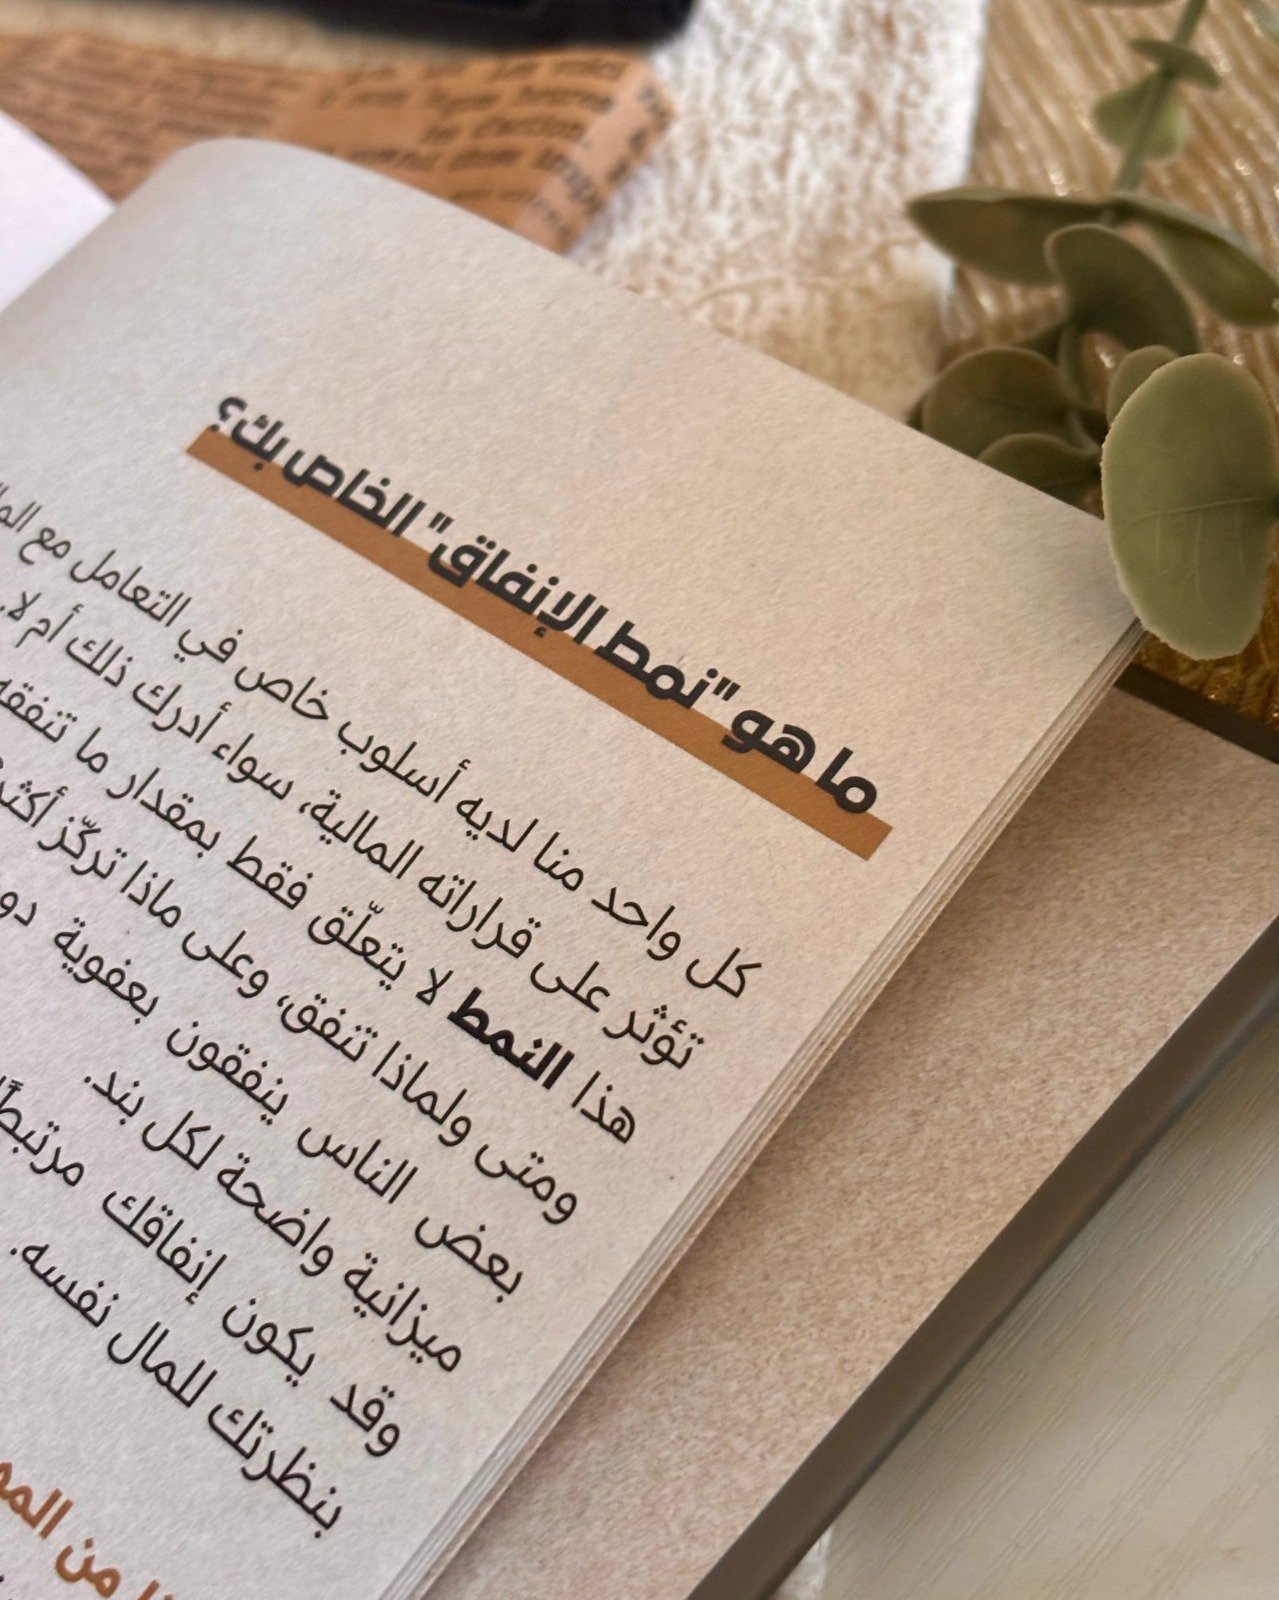 ما هو "نمط الإنفاق" الخاص بك؟
كل واحد منا لديه أسلوب خاص في التعامل مع
تؤثر على قراراته المالية، سواء أدرك ذلك أم لا.
هذا النمط لا يتعلّق فقط بمقدار ما تنفقه
ومتى ولماذا تنفق، وعلى ماذا تركّز أكثر
بعض الناس ينفقون بعفوية
ميزانية واضحة لكل بند.
وقد يكون إنفاقك مرتبطًا
بنظرتك للمال نفسه.
من